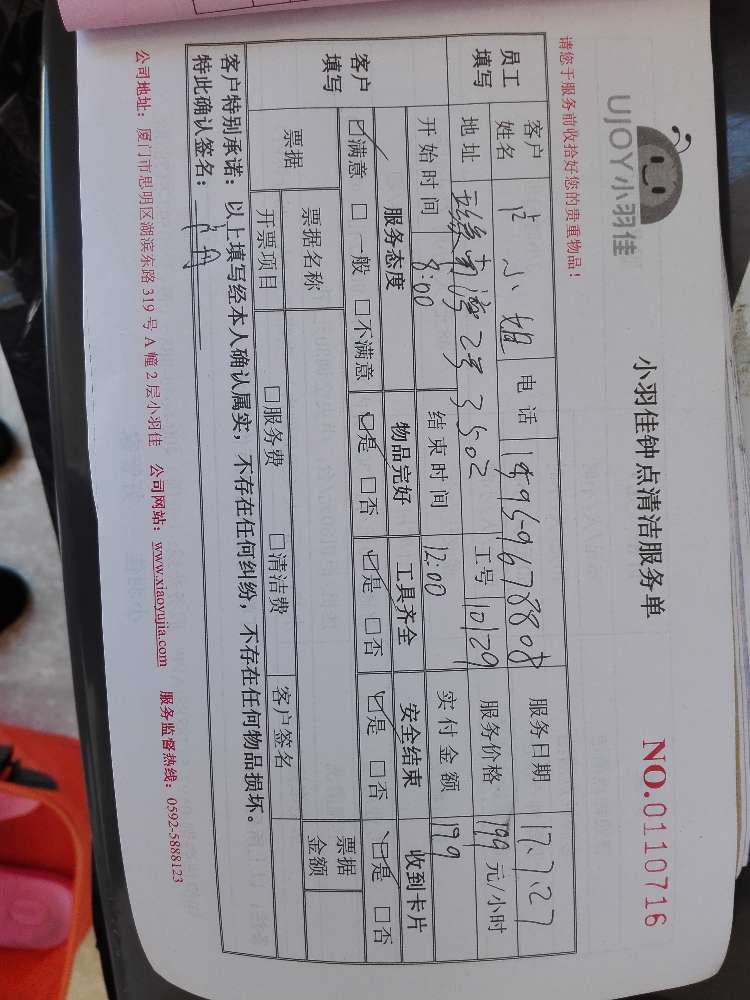 UJOY小羽佳
小羽佳钟点清洁服务单
NO.0110716
请您于服务前收拾好您的贵重物品！
员工填写
客户姓名 小姐 电话 服务日期 17.7.27
地址 2号3502 工号 10129 服务价格 199 元/小时
开始时间 8:00 结束时间 12:00 实付金额 199
客户填写
服务态度 物品完好 工具齐全 安全结束 收到卡片
☑满意 □一般 □不满意 ☑是 □否 ☑是 □否 ☑是 □否 ☑是 □否
票据 票据名称 票据金额
开票项目 □服务费 □清洁费 客户签名
客户特别承诺：以上填写经本人确认属实，不存在任何纠纷，不存在任何物品损坏。
特此确认签名：
公司地址：厦门市思明区湖滨东路 319 号 A 幢 2 层小羽佳 公司网站：www.xiaoyujia.com 服务监督热线：0592-5888123